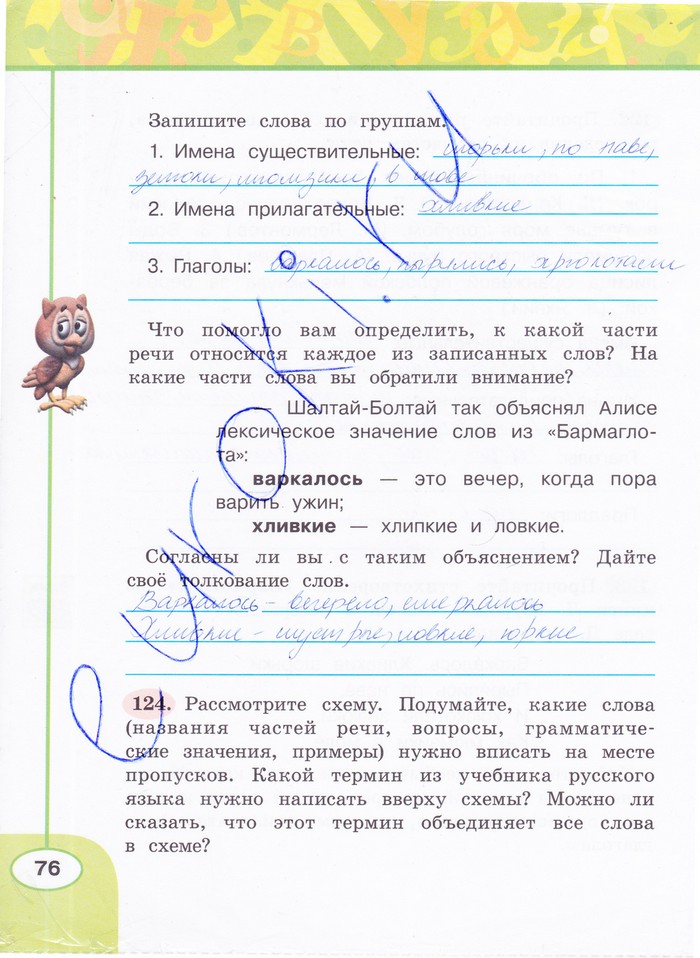 Запишите слова по группам.
1. Имена существительные: шорьки, по наве,
зелюки, мюмзики, в мове
2. Имена прилагательные: хливкие
3. Глаголы: варкалось, пырялись, хрюкотали
Что помогло вам определить, к какой части
речи относится каждое из записанных слов? На
какие части слова вы обратили внимание?
— Шалтай-Болтай так объяснял Алисе
лексическое значение слов из «Бармагло-
та»:
варкалось — это вечер, когда пора
варить ужин;
хливкие — хлипкие и ловкие.
Согласны ли вы с таким объяснением? Дайте
своё толкование слов.
Варкалось - вечерело, смеркалось
Хливкие - шустрые, ловкие, юркие
124. Рассмотрите схему. Подумайте, какие слова
(названия частей речи, вопросы, грамматиче-
ские значения, примеры) нужно вписать на месте
пропусков. Какой термин из учебника русского
языка нужно написать вверху схемы? Можно ли
сказать, что этот термин объединяет все слова
в схеме?
76
euroki.ru